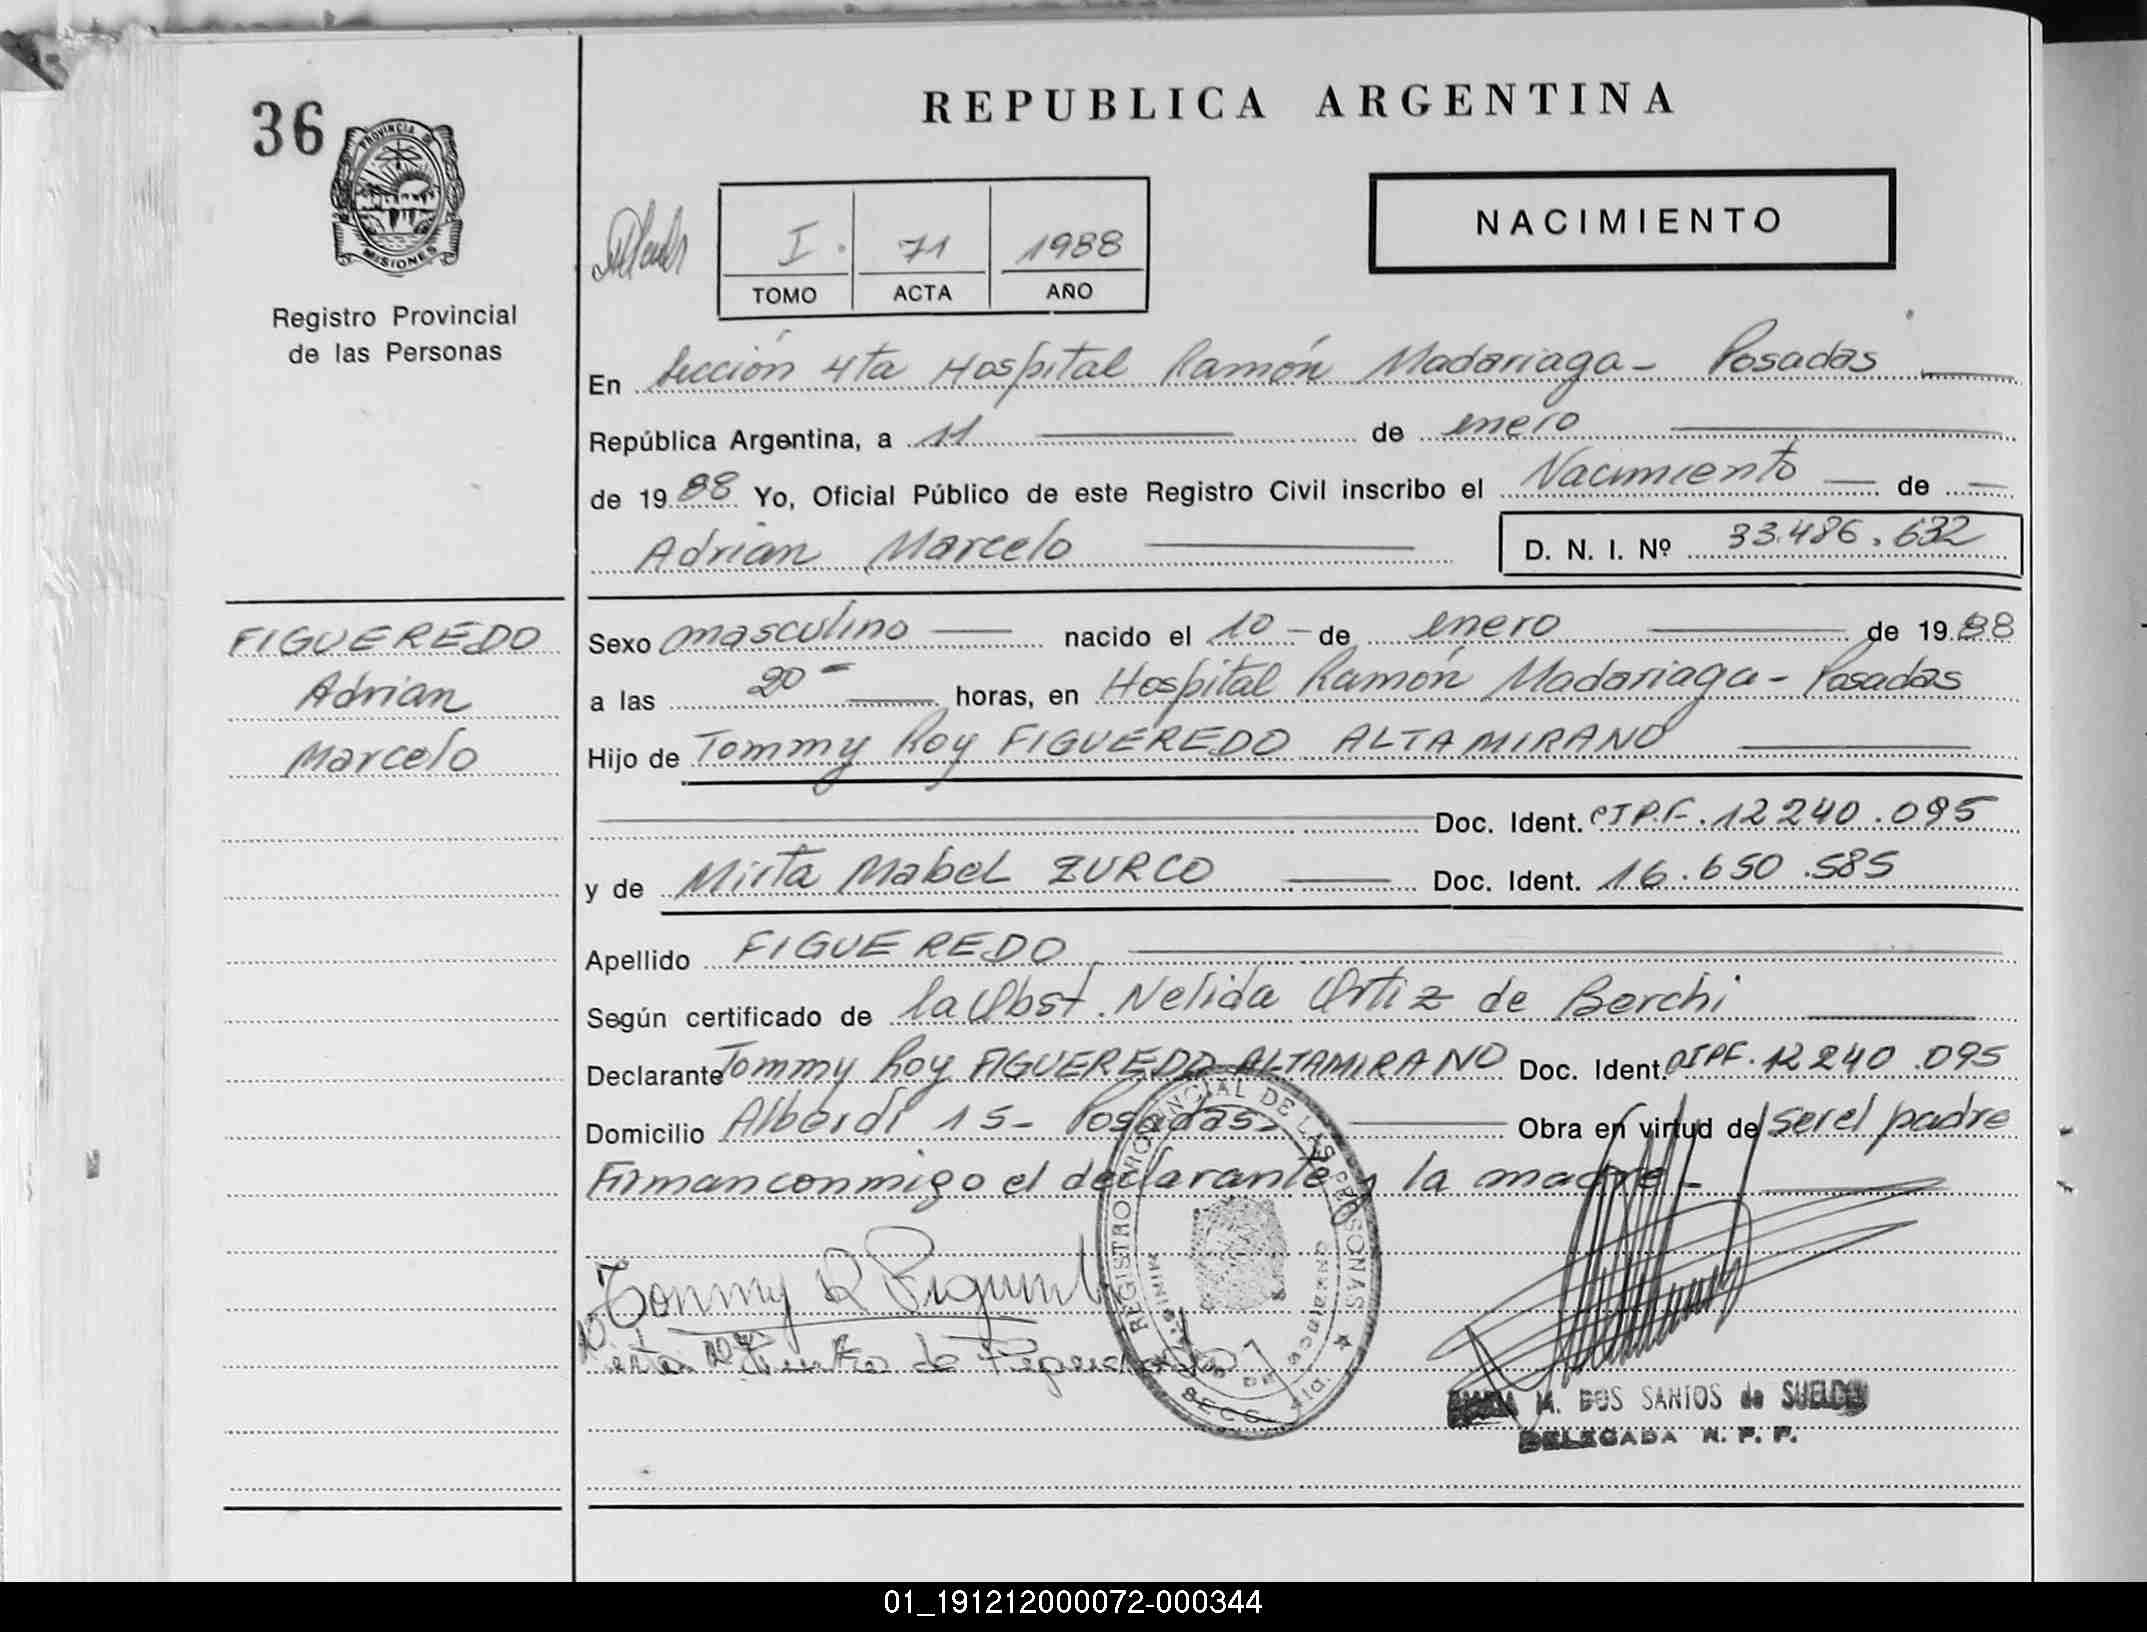 36
PROVINCIA DE
MISIONES
Registro Provincial
de las Personas
REPUBLICA ARGENTINA
NACIMIENTO
I. 71 1988
TOMO ACTA AÑO
En Sección 4ta Hospital Ramón Madariaga - Posadas
República Argentina, a 11 de enero
de 1988 Yo, Oficial Público de este Registro Civil inscribo el Nacimiento de
Adrian Marcelo D. N. I. Nº 33.486.632
FIGUEREDO
Adrian
Marcelo
Sexo masculino nacido el 10 - de enero de 1988
a las 20 - horas, en Hospital Ramón Madariaga - Posadas
Hijo de Tommy Roy FIGUEREDO ALTAMIRANO
Doc. Ident. CIPF. 12240.095
y de Mirta Mabel ZURCO Doc. Ident. 16.650.585
Apellido FIGUEREDO
Según certificado de la Obst. Nelida Ortiz de Berchi
Declarante Tommy Roy FIGUEREDO ALTAMIRANO Doc. Ident. CIPF. 12240.095
Domicilio Alberdi 15 - Posadas - Obra en virtud de ser el padre
Firman conmigo el declarante y la madre -
Tommy R
REGISTRO PROVINCIAL DE LAS PERSONAS
M. DOS SANTOS de SUELDO
DELEGADA R. P. P.
01_191212000072-000344